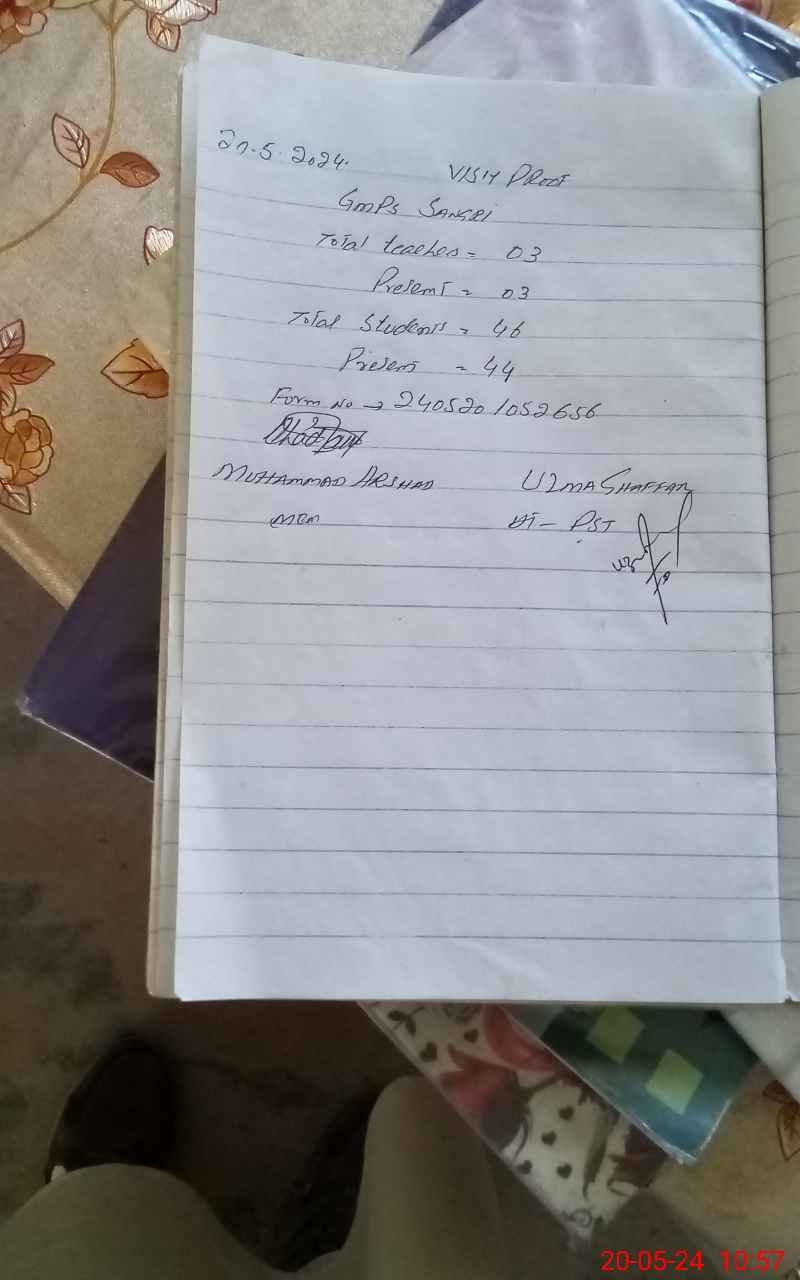 20.5.2024.
VISIT PROOF
GMPS SANGRI
Total teacher = 03
Present = 03
Total Students = 46
Present = 44
Form No → 2405201052656
MUHAMMAD ARSHAD
UZMA GHAFFAR
PST
20-05-24 10:57